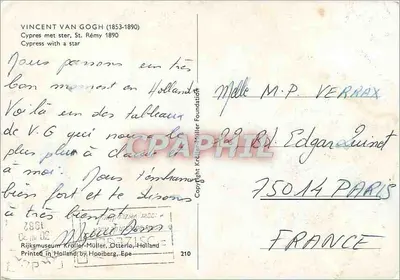 VINCENT VAN GOGH (1853-1890)
Cypres met ster, St. Rémy 1890
Cypress with a star
Nous passons un très
bon moment en Holland
Voilà un des tableaux
de V.G qui nous le
plus plu à
à moi. Nous t'embrassons
bien fort et te disons
à très bientôt
Rijksmuseum Kröller-Müller, Otterlo, Holland
Printed in Holland by Hooiberg, Epe
210
Copyright Kröller-Müller Foundation
CPAPHIL
Melle M.P. VERNAX
22 Bd Edgar Quinet
75014 PARIS
FRANCE